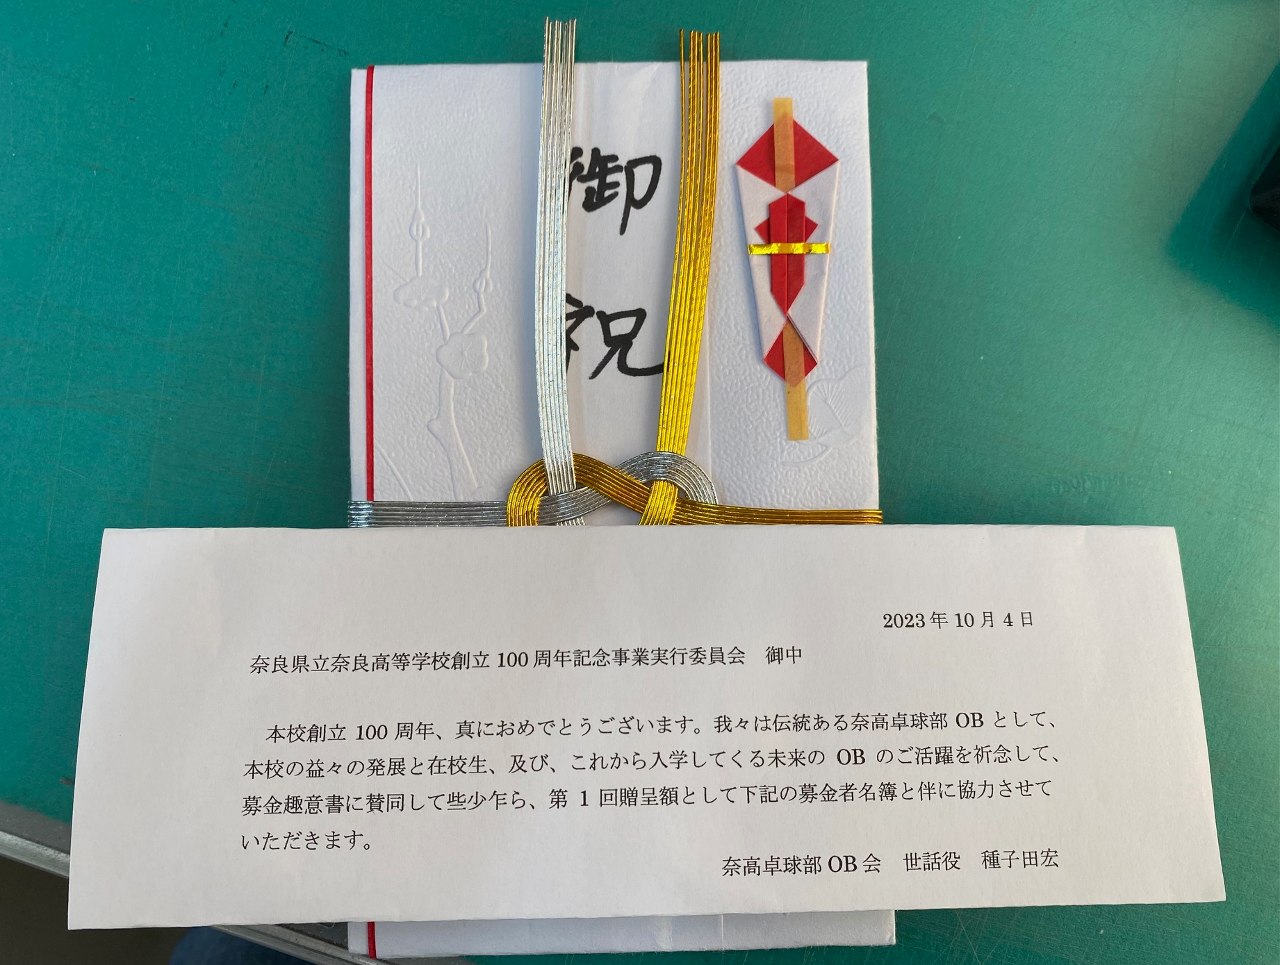 御祝
2023年10月4日
奈良県立奈良高等学校創立100周年記念事業実行委員会 御中
本校創立100周年、真におめでとうございます。我々は伝統ある奈高卓球部OBとして、
本校の益々の発展と在校生、及び、これから入学してくる未来のOBのご活躍を祈念して、
募金趣意書に賛同して些少乍ら、第1回贈呈額として下記の募金者名簿と伴に協力させて
いただきます。
奈高卓球部OB会 世話役 種子田宏